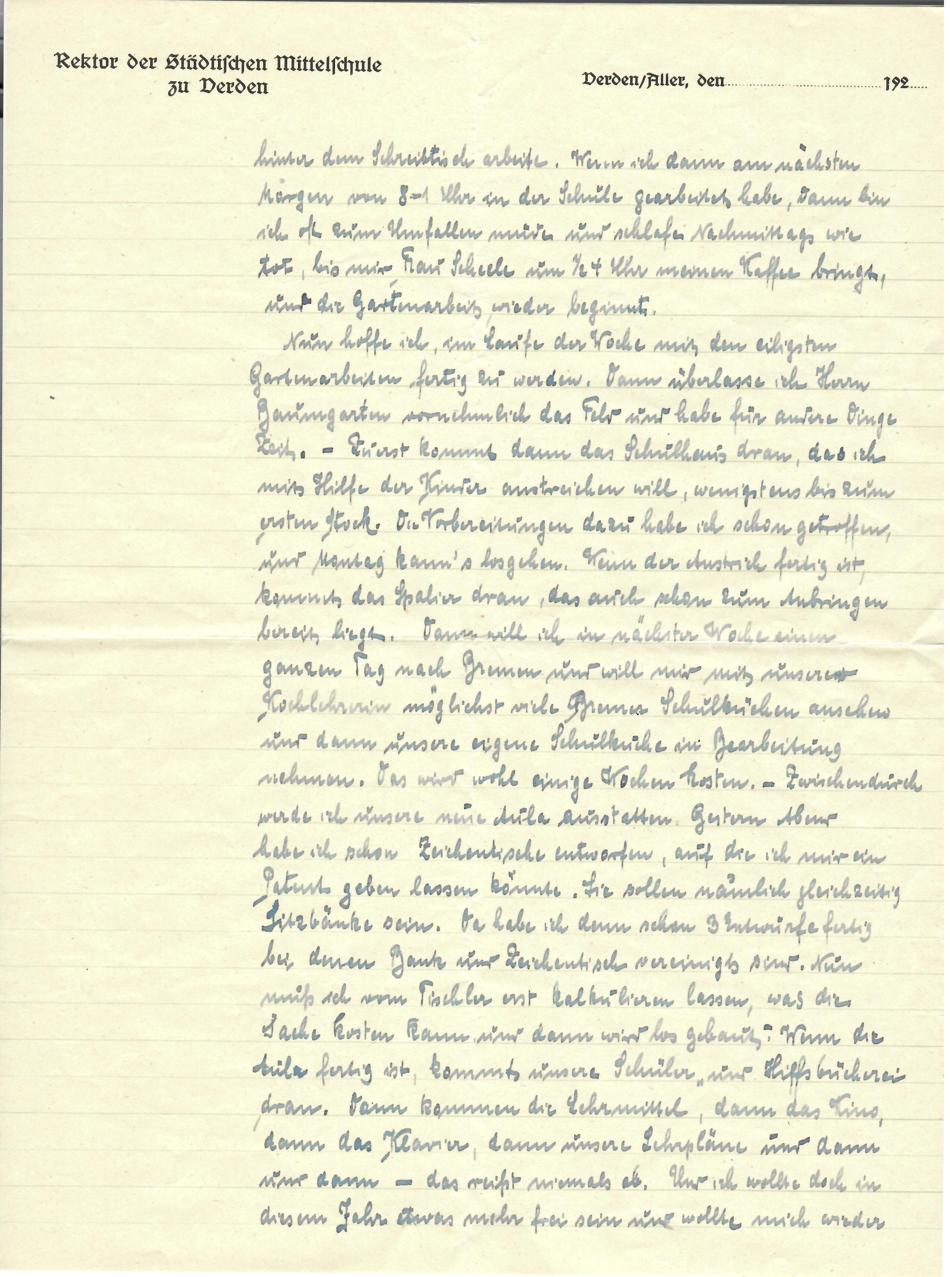 Rektor der Städtischen Mittelschule
zu Verden
Verden/Aller, den 192
hinter dem Schreibtisch arbeite. Wenn ich dann am nächsten
Morgen von 8-1 Uhr in der Schule gearbeitet habe, dann bin
ich oft zum Umfallen müde und schlafe Nachmittags wie
tot, bis mir Frau Scheele um ½4 Uhr meinen Kaffee bringt,
und die Gartenarbeit wieder beginnt.
Nun hoffe ich, im Laufe der Woche mit den eiligsten
Gartenarbeiten fertig zu werden. Dann überlasse ich Herrn
Baumgarten vornehmlich das Feld und habe für andere Dinge
Zeit. – Zuerst kommt dann das Schulhaus dran, das ich
mit Hilfe der Kinder anstreichen will, wenigstens bis zum
ersten Stock. Die Vorbereitungen dazu habe ich schon getroffen,
und Montag kann's losgehen. Wenn der Anstrich fertig ist,
kommt das Spalier dran, das auch schon zum Anbringen
bereit liegt. Dann will ich in nächster Woche einen
ganzen Tag nach Bremen und will mir mit unserer
Kochlehrerin möglichst viele Bremer Schulküchen ansehen
und dann unsere eigene Schulküche in Bearbeitung
nehmen. Das wird wohl einige Wochen kosten. – Zwischendurch
werde ich unsere neue Aula ausstatten. Gestern Abend
habe ich schon Zeichentische entworfen, auf die ich mir ein
Patent geben lassen könnte. Sie sollen nämlich gleichzeitig
Sitzbänke sein. Da habe ich denn schon 3 Entwürfe fertig
bei denen Bank und Zeichentisch vereinigt sind. Nun
muß ich vom Tischler erst kalkulieren lassen, was die
Sache kosten kann und dann wird los gebaut. Wenn die
Aula fertig ist, kommt unsere Schüler- und Hilfsbücherei
dran. Dann kommen die Lehrmittel, dann das Kino,
dann das Klavier, dann unsere Lehrpläne und dann
und dann – das reißt niemals ab. Und ich wollte doch in
diesem Jahr etwas mehr frei sein und wollte mich wieder